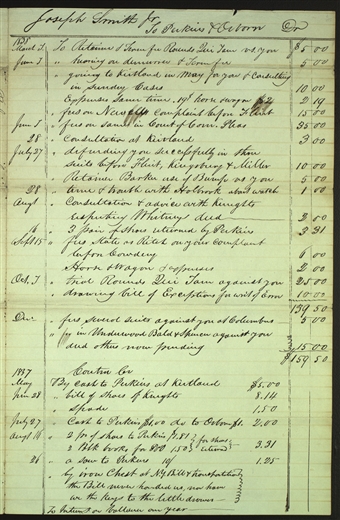 Joseph Smith Jr
To Perkins & Osborn Dr
To Retainer & Term fee Rounds Qui Tam vs you $5 00
June 3 " arguing on demurrer & Term fee 5 00
" going to Kirtland in May for you & Consulting
in Sundry Cases 10 00
Expenses Same time, horse & wagon $2 2 19
" fees on New Complaint 15 00
June 5 " fees on same in Court of Com. Pleas 25 00
28 " Consultation at Kirtland 3 00
July 27 " defending you successfully in three
Suits before Flint, Kingsbury & Miller 15 00
" Retainer Barker use of Bump vs you 5 00
28 " time & trouble with Holbrook about watch 1 00
Augt 1 " Consultation & advice with Knights
respecting Whitney deed 2 00
16 " 3 pair of shoes returned by Perkins 3 31
Sept 15 " fees State vs Ritch on your Complaint
before Cowdery 6 00
Horse & Wagon & expenses 2 00
Oct. T " trial Rounds Qui Tam against you 25 00
" drawing bill of Exceptions for writ of Error 10 00
139 50
" fees several suits against you at Columbus 5 00
" in Underwood Bald & Spencer against you
and others now pending 15 00
$159 50
1837 Contra Cr
May By Cash to Perkins at Kirtland $5.00
June 28 " bill of shoes of Knights 8.14
" Spade 1.50
July 27 " Cash to Perkins $1.00 do to Osborn $1. 2.00
Augt 16 " 2 pr of shoes to Perkins 1.81 } for shoes
" 2 Blk books for do 1.50 } 3.31
26 " a saw to Perkins 10/ 1.25
" by iron Chest at N.Y. Bill & transportation
the Bill never handed us, nor have
we the keys to the little drawers
To Interest on balance one year